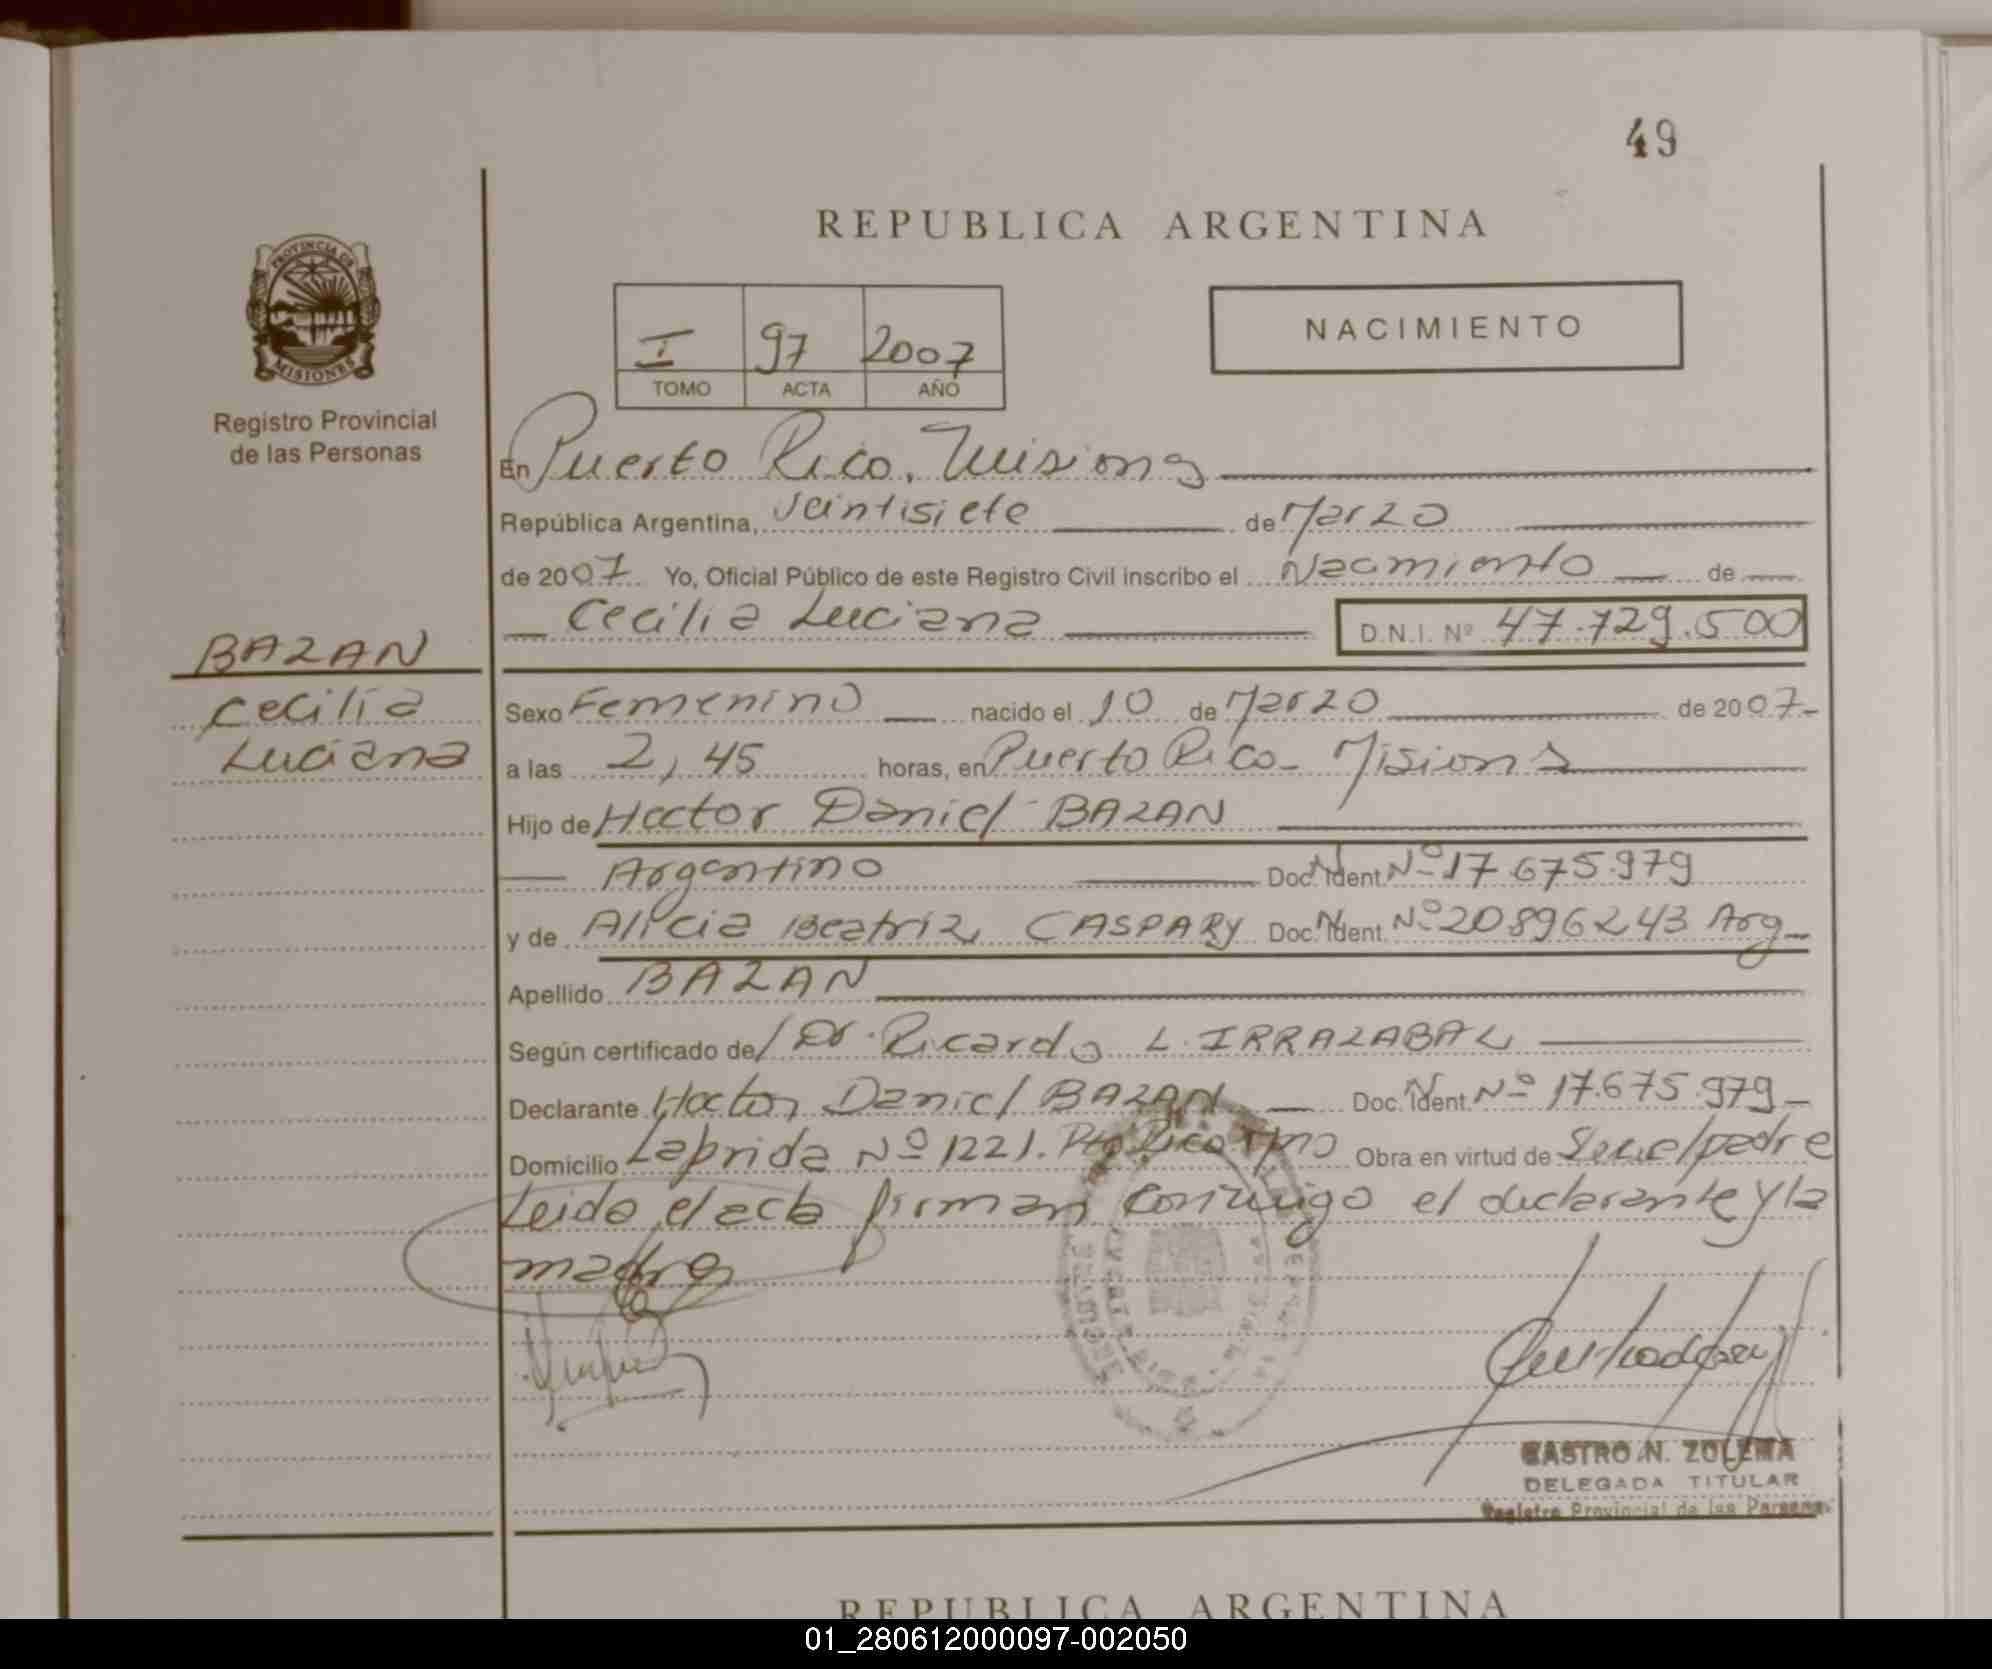 49
REPUBLICA ARGENTINA
PROVINCIA DE
MISIONES
Registro Provincial
de las Personas
I 97 2007
TOMO ACTA AÑO
NACIMIENTO
En Puerto Rico, Misiones
República Argentina, veintisiete de Marzo
de 2007 Yo, Oficial Público de este Registro Civil inscribo el Nacimiento de
Cecilia Luciana D.N.I. Nº 47.729.500
BAZAN
Cecilia
Luciana
Sexo Femenino nacido el 10 de Marzo de 2007
a las 2,45 horas, en Puerto Rico - Misiones
Hijo de Hector Daniel BAZAN
Argentino Doc. Ident. Nº 17.675.979
y de Alicia Beatriz CASPARY Doc. Ident. Nº 20896243 Arg
Apellido BAZAN
Según certificado de Dr. Ricardo L. IRRAZABAL
Declarante Hector Daniel BAZAN Doc. Ident. Nº 17.675.979
Domicilio Laprida Nº 1221. Pto Rico Mnes Obra en virtud de Ser el padre
Leida el acta firman conmigo el declarante y la
madre
CASTRO N. ZULEMA
DELEGADA TITULAR
Registro Provincial de las Personas
REPUBLICA ARGENTINA
01_280612000097-002050